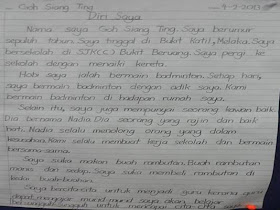 Goh Siang Ting 9-2-2013
Diri Saya
Nama saya Goh Siang Ting. Saya berumur
sepuluh tahun. Saya tinggal di Bukit Katil, Melaka. Saya
bersekolah di SJK(C) Bukit Beruang. Saya pergi ke
sekolah dengan menaiki kereta.
Hobi saya ialah bermain badminton. Setiap hari,
saya bermain badminton dengan adik saya. Kami
bermain badminton di hadapan rumah saya.
Selain itu, saya juga mempunyai seorang kawan baik.
Dia bernama Nadia. Dia seorang yang rajin dan baik
hati. Nadia selalu menolong orang yang dalam
kesusahan. Kami selalu membuat kerja sekolah dan bermain
bersama-sama.
Saya suka makan buah rambutan. Buah rambutan
manis dan sedap. Saya suka membeli rambutan di
Saya bercita-cita untuk menjadi guru kerana guru
dapat mengajar murid-murid. Saya akan belajar
bersungguh-sungguh untuk mencapai cita-cita